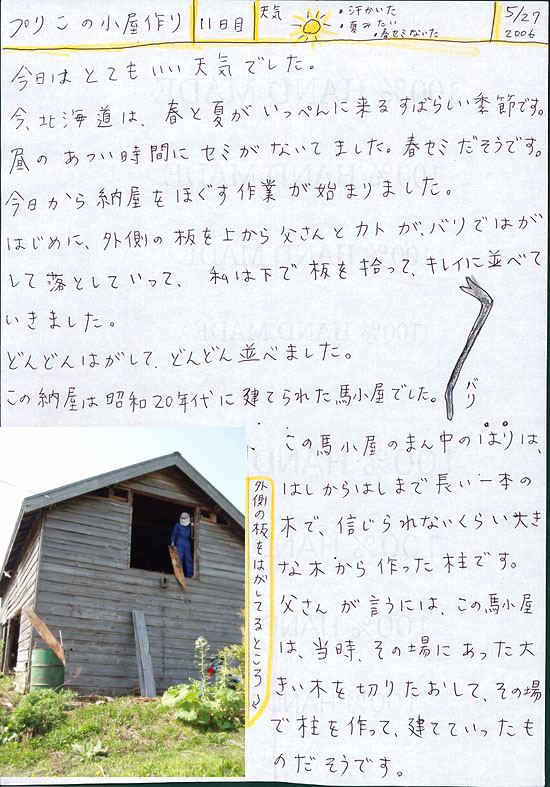 プリこの小屋作り
11日目
天気
・汗かいた
・夏みたい
・春セミないた
5/27
2006
今日はとてもいい天気でした。
今、北海道は、春と夏がいっぺんに来るすばらしい季節です。
昼のあつい時間にセミがないてました。春セミだそうです。
今日から納屋をほぐす作業が始まりました。
はじめに、外側の板を上から父さんとカトが、バリではが
して落としていって、私は下で板を拾って、キレイに並べて
いきました。
どんどんはがして、どんどん並べました。
この納屋は昭和20年代に建てられた馬小屋でした。
バリ
この馬小屋のまん中のはりは、
はしからはしまで長い一本の
木で、信じられないくらい大き
な木から作った柱です。
父さんが言うには、この馬小屋
は、当時、その場にあった大
きい木を切りたおして、その場
で柱を作って、建てていったも
のだそうです。
外側の板をはがしてるところ
100% HAND MADE